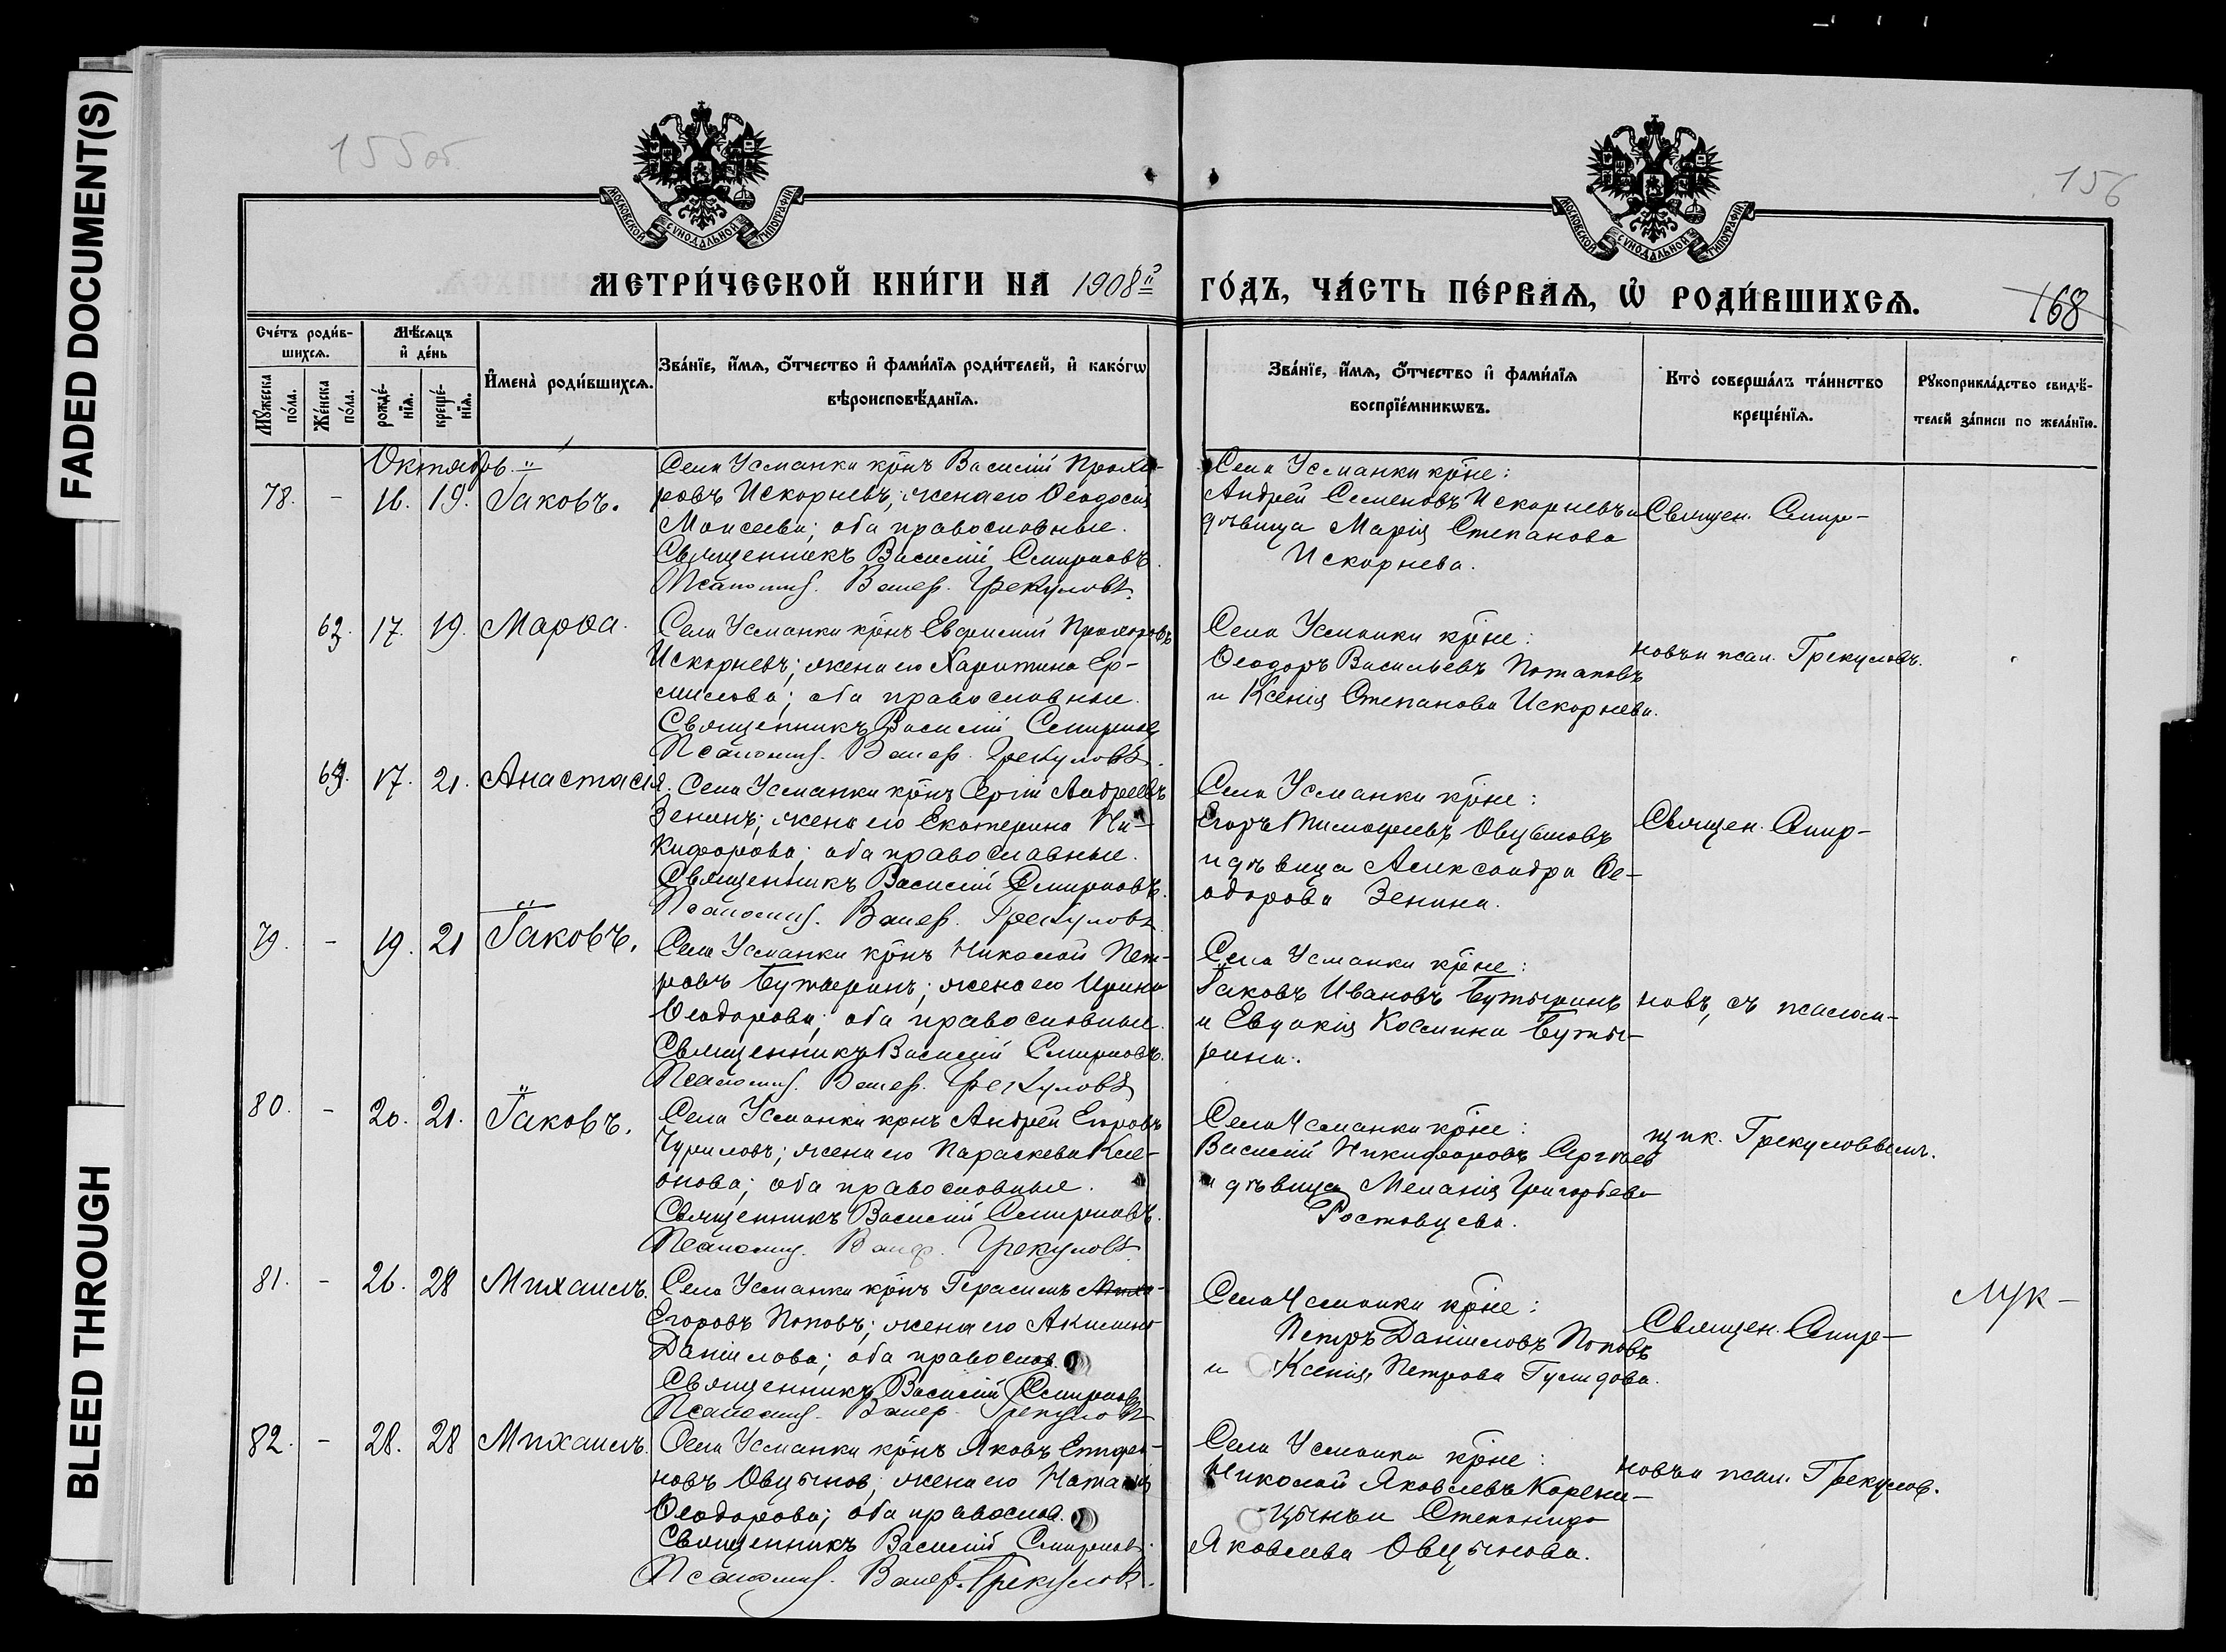 FADED DOCUMENT(S)
BLEED THROUGH
155 об.
156
168
МОСКОВСКОЙ СѴНОДАЛЬНОЙ ТИПОГРАФІИ
МОСКОВСКОЙ СѴНОДАЛЬНОЙ ТИПОГРАФІИ
МЕТРИ́ЧЕСКОЙ КНИ́ГИ НА 1908й ГО́ДЪ, ЧА́СТЬ ПЕ́РВАѦ, Ѡ҆ РОДИ́ВШИХСѦ.
Сче́тъ роди́в-
шихсѧ.
Мꙋ́жеска по́ла.
Же́нска по́ла.
Мѣ́сѧцъ
и҆ де́нь
рожде́-
нїѧ.
креще́-
нїѧ.
И҆мена̀ роди́вшихсѧ.
Зва́нїе, и҆́мѧ, ѻ҆́тчество и҆ фами́лїѧ роди́телей, и҆ како́гѡ
вѣроисповѣ́данїѧ.
Зва́нїе, и҆́мѧ, ѻ҆́тчество и҆ фами́лїѧ
воспрїе́мникѡвъ.
Кто̀ соверша́лъ та́инство
креще́нїѧ.
Рꙋкоприкла́дство свидѣ́-
телей за́писи по жела́нїю.
Октябрь
78. - 16. 19. Іаковъ.
Села Усманки крнъ Василій Прохо-
ровъ Искорневъ; жена его Ѳеодосія
Моисеева; оба православные.
Священникъ Василій Смирновъ.
Псаломщ. Валер. Грекуловъ
Села Усманки кр̃не:
Андрей Семеновъ Искорневъ и
дѣвица Марія Степанова
Искорнева.
Священ. Смир-
63. 17. 19. Марѳа.
Села Усманки крнъ Евфимій Прохоровъ
Искорневъ; жена его Харитина Ер-
милова; оба православные.
Священникъ Василій Смирновъ
Псаломщ. Валер. Грекуловъ
Села Усманки кр̃не:
Ѳеодоръ Васильевъ Потаповъ
и Ксенія Степанова Искорнева.
новъ и псал. Грекуловъ.
64. 17. 21. Анастасія.
Села Усманки крнъ Сергій Андреевъ
Зенинъ; жена его Екатерина Ни-
кифорова; оба православные.
Священникъ Василій Смирновъ.
Псаломщ. Валер. Грекуловъ
Села Усманки кр̃не:
Егоръ Тимофеевъ Овцыновъ
и дѣвица Александра Ѳе-
одорова Зенина.
Священ. Смир-
79. - 19. 21 Іаковъ.
Села Усманки крнъ Николай Пет-
ровъ Бутыринъ; жена его Ирина
Ѳеодорова; оба православные.
Священникъ Василій Смирновъ.
Псаломщ. Валер. Грекуловъ
Села Усманки кр̃не:
Іаковъ Ивановъ Бутыринъ
и Евдокія Космина Буты-
рина.
новъ, съ псалом-
80. - 20. 21. Іаковъ.
Села Усманки крнъ Андрей Егоровъ
Чуриловъ; жена его Параскева Кле-
онова; оба православные.
Священникъ Василій Смирновъ.
Псаломщ. Валер. Грекуловъ
Села Усманки кр̃не:
Василій Никифоровъ Сергѣев
и дѣвица Меланія Григорьева
Ростовцева.
щик. Грекуловымъ.
81. - 26. 28 Михаилъ.
Села Усманки крнъ Герасимъ Миха-
Егоровъ Поповъ; жена его Акилина
Даніилова; оба правосл.
Священникъ Василій Смирновъ
Псаломщ. Валер. Грекуловъ
Села Усманки кр̃не:
Петръ Данииловъ Поповъ
и Ксенія Петрова Гулидова.
Священ. Смир-
Лук-
82. - 28. 28 Михаилъ.
Села Усманки крнъ Яковъ Епифа-
новъ Овцынов; жена его Наталія
Ѳеодорова; оба правосл.
Священникъ Василій Смирновъ.
Псаломщ. Валер. Грекуловъ.
Села Усманки кр̃не:
Николай Яковлевъ Корени-
цынъ и Степанида
Яковлева Овцынова.
новъ и псал. Грекулов.